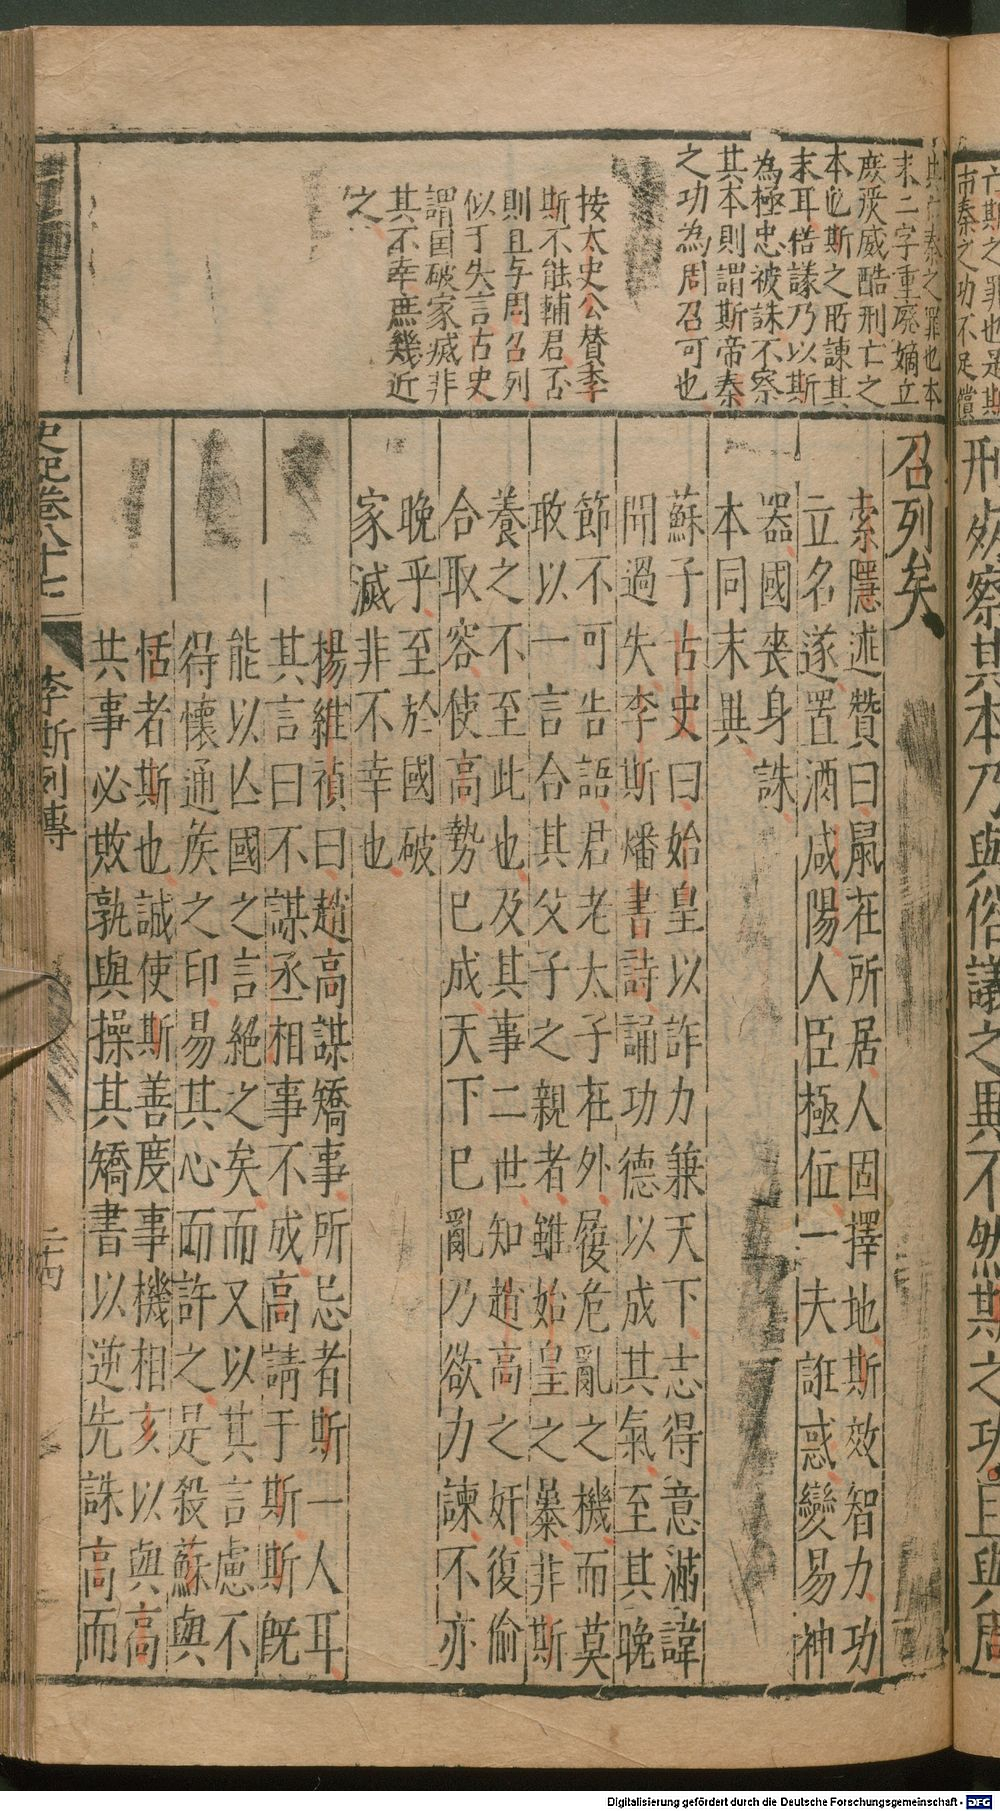 亡斯之罪也是斯
市秦之功不足償
刑然察其本乃與俗議之異不然斯之功且與周
則亡秦之罪也本
末二字重廃嫡立
庻後威酷刑亡之
本也斯之所諫其
末耳俗議乃以斯
為極忠被誅不察
其本則謂斯帝秦
之功為周召可也
按太史公賛李
斯不能輔君否
則且与周召列
似于失言古史
謂囯破家滅非
其不幸庶幾近
之
召列矣
索隱述贊曰鼠在所居人固擇地斯效智力功
立名遂置酒咸陽人臣極位一夫誑惑變易神
器國喪身誅
本同末異
蘇子古史曰始皇以詐力兼天下志得意滿諱
聞過失李斯燔書詩誦功德以成其氣至其晚
節不可告語君老太子在外屢危亂之機而莫
敢以一言合其父子之親者雖始皇之暴非斯
養之不至此也及其事二世知趙高之奸復偷
合取容使高勢已成天下已亂乃欲力諫不亦
晚乎至於國破
家滅非不幸也
楊維禎曰趙高謀矯事所忌者斯一人耳
其言曰不謀丞相事不成高請于斯斯旣
能以亾國之言絶之矣而又以其言慮不
得懷通矦之印易其心而許之是殺蘇與
恬者斯也誠使斯善度事機相亥以與高
共事必敗孰與操其矯書以逆先誅高而
史記卷八十七
李斯列傳
二十四
Digitalisierung gefördert durch die Deutsche Forschungsgemeinschaft - DFG